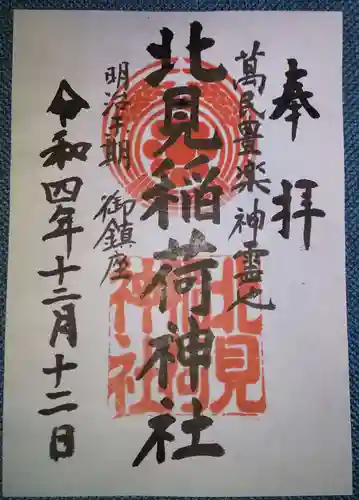 奉拝
萬民豊楽神霊也
北見稲荷神社
明治王期御鎮座
令和四年十二月十二日
北見
稲荷
神社